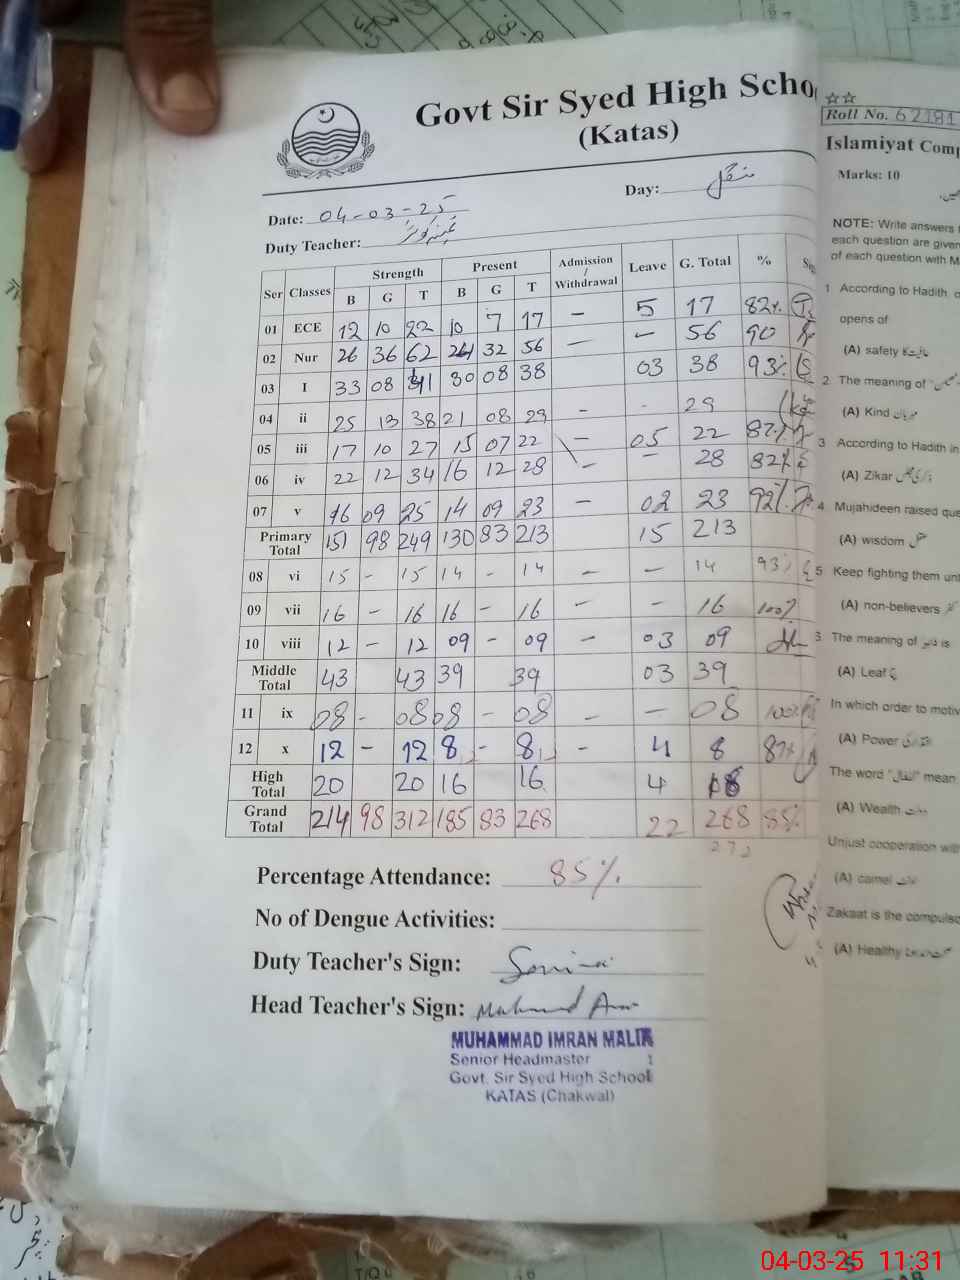 Govt Sir Syed High Scho
(Katas)
Date: 04-03-25 Day: منگل
Duty Teacher:
Ser Classes Strength Present Admission / Withdrawal Leave G. Total %
B G T B G T
01 ECE 12 10 22 10 7 17 - 5 17 82%
02 Nur 26 36 62 24 32 56 - - 56 90
03 I 33 08 41 30 08 38 03 38 93%
04 ii 25 13 38 21 08 29 - - 29
05 iii 17 10 27 15 07 22 - 05 22 87%
06 iv 22 12 34 16 12 28 - - 28 82%
07 v 16 09 25 14 09 23 - 02 23 92%
Primary Total 151 98 249 130 83 213 15 213
08 vi 15 - 15 14 - 14 - - 14 93%
09 vii 16 - 16 16 - 16 - - 16 100%
10 viii 12 - 12 09 - 09 - 03 09
Middle Total 43 43 39 39 03 39
11 ix 08 - 08 08 - 08 - - 08 100%
12 x 12 - 12 8 - 8 - 4 8 87%
High Total 20 20 16 16 4 16
Grand Total 214 98 312 185 83 268 22 268 85%
272
Percentage Attendance: 85%
No of Dengue Activities:
Duty Teacher's Sign:
Head Teacher's Sign:
MUHAMMAD IMRAN MALIK
Senior Headmaster
Govt. Sir Syed High School
KATAS (Chakwal)
☆☆
Roll No. 62181
Islamiyat Comp
Marks: 10
NOTE: Write answers
each question are given
of each question with M
1 According to Hadith
opens of
(A) safety
2. The meaning of
(A) Kind مہربان
3 According to Hadith in
(A) Zikar
4. Mujahideen raised que
(A) wisdom
5 Keep fighting them unt
(A) non-believers
The meaning of is
(A) Leaf
In which order to motiv
(A) Power
The word "انفال" mean
(A) Wealth
Unjust cooperation with
(A) camel
Zakaat is the compulso
(A) Healthy
04-03-25 11:31